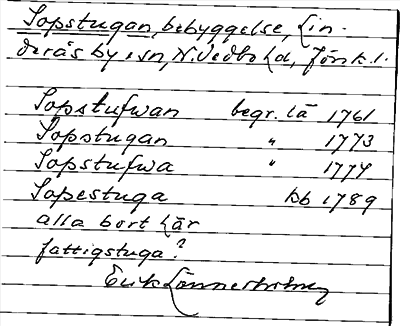 Sopstugan, bebyggelse, Lin-
derås by o sn, N. Vedbo hd, Jönk. l.
Sopstufwan begr. lä 1761
Sopstugan " 1773
Sopstufwa " 1774
Sopestuga kb 1789
alla bort här
fattigstuga?
Erik Lönnerholm